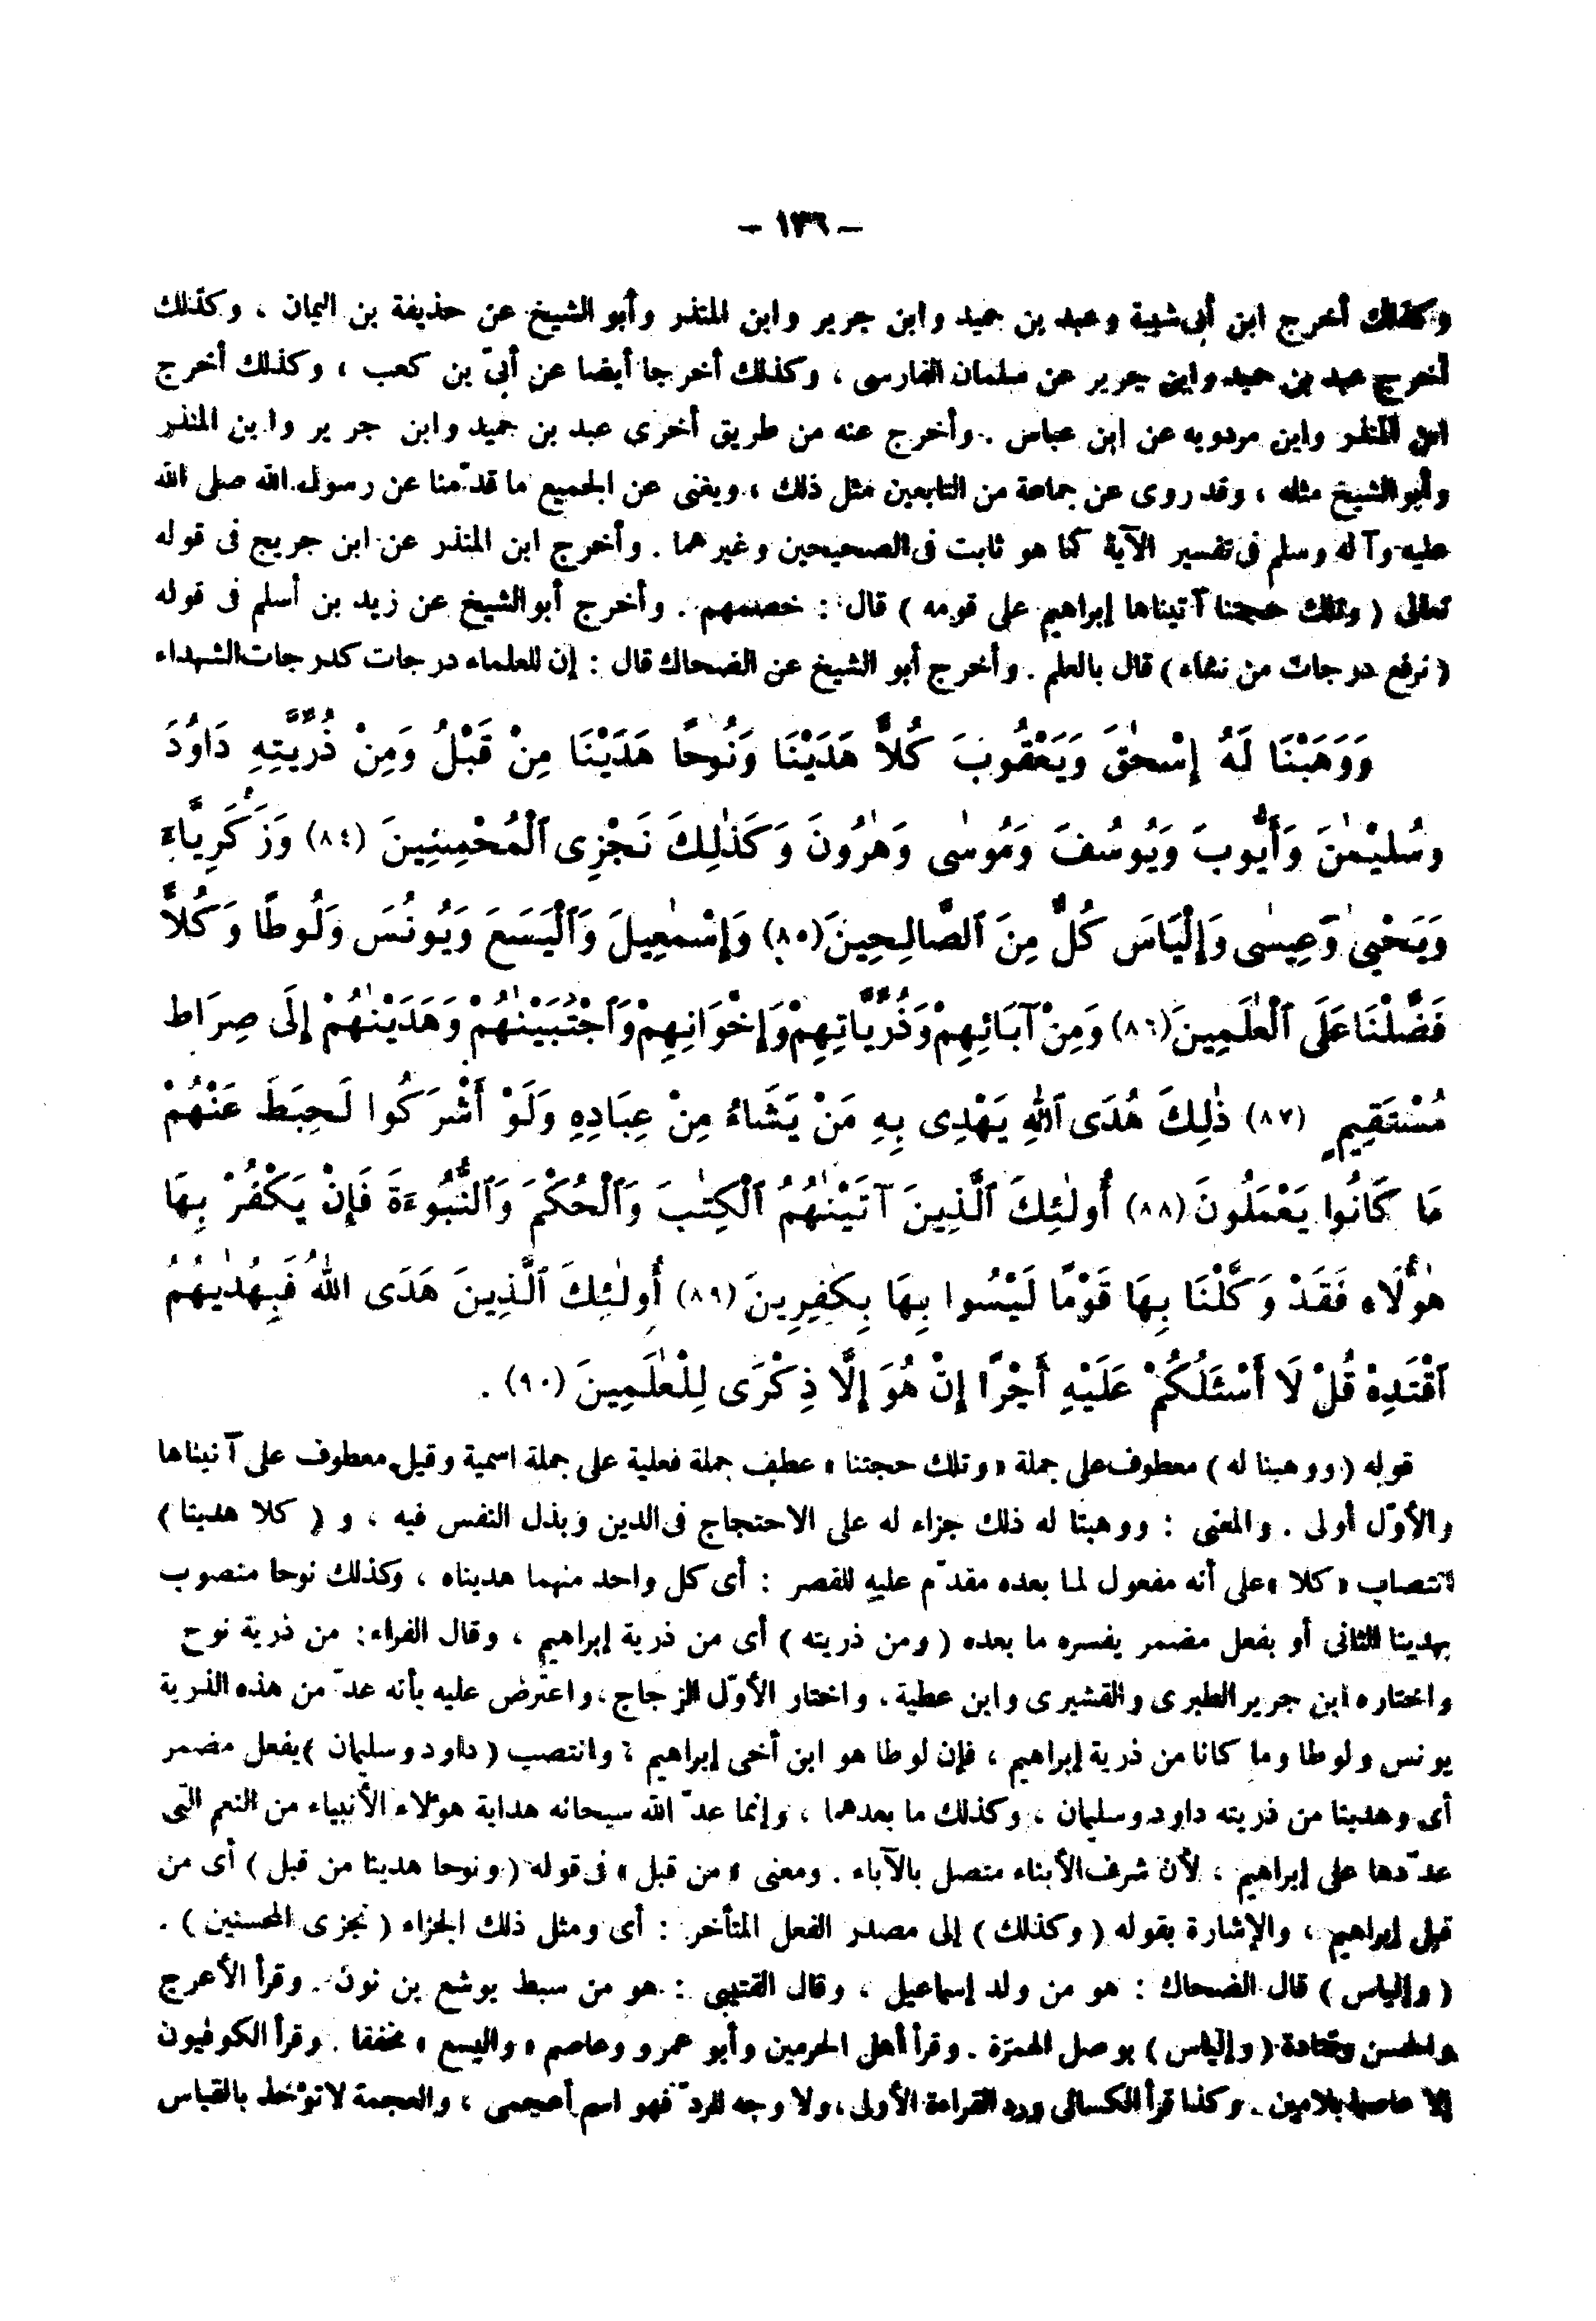 – ١٣٦ –
وكذلك أخرج ابن أبى شيبة وعبد بن حميد وابن جرير وابن المنذر وأبو الشيخ عن حذيفة بن اليمان ، وكذلك
أخرج عبد بن حميد وابن جرير عن سلمان الفارسى ، وكذلك أخرجا أيضا عن أبىّ بن كعب ، وكذلك أخرج
ابن المنذر وابن مردويه عن ابن عباس . وأخرج عنه من طريق أخرى عبد بن حميد وابن جرير وابن المنذر
وأبو الشيخ مثله ، وقد روى عن جماعة من التابعين مثل ذلك ، ويغنى عن الجميع ما قدّمنا عن رسول الله صلى الله
عليه وآله وسلم فى تفسير الآية كما هو ثابت فى الصحيحين وغيرهما . وأخرج ابن المنذر عن ابن جريج فى قوله
تعالى ( وتلك حجتنا آتيناها إبراهيم على قومه ) قال : خصمهم . وأخرج أبو الشيخ عن زيد بن أسلم فى قوله
( نرفع درجات من نشاء ) قال بالعلم . وأخرج أبو الشيخ عن الضحاك قال : إن للعلماء درجات كدرجات الشهداء
وَوَهَبْنَا لَهُ إِسْحٰقَ وَيَعْقُوبَ كُلاًّ هَدَيْنَا وَنُوحًا هَدَيْنَا مِنْ قَبْلُ وَمِنْ ذُرِّيَّتِهِ دَاوُدَ
وَسُلَيْمٰنَ وَأَيُّوبَ وَيُوسُفَ وَمُوسٰى وَهٰرُونَ وَكَذٰلِكَ نَجْزِى ٱلْمُحْسِنِينَ (٨٤) وَزَكَرِيَّاءَ
وَيَحْيٰى وَعِيسٰى وَإِلْيَاسَ كُلٌّ مِنَ ٱلصَّالِحِينَ (٨٥) وَإِسْمٰعِيلَ وَٱلْيَسَعَ وَيُونُسَ وَلُوطًا وَكُلاًّ
فَضَّلْنَا عَلَى ٱلْعٰلَمِينَ (٨٦) وَمِنْ آبَائِهِمْ وَذُرِّيَّاتِهِمْ وَإِخْوَانِهِمْ وَٱجْتَبَيْنٰهُمْ وَهَدَيْنٰهُمْ إِلَى صِرَاطٍ
مُسْتَقِيمٍ (٨٧) ذٰلِكَ هُدَى ٱللهِ يَهْدِى بِهِ مَنْ يَشَاءُ مِنْ عِبَادِهِ وَلَوْ أَشْرَكُوا لَحَبِطَ عَنْهُمْ
مَا كَانُوا يَعْمَلُونَ (٨٨) أُولٰئِكَ ٱلَّذِينَ آتَيْنٰهُمُ ٱلْكِتٰبَ وَٱلْحُكْمَ وَٱلنُّبُوءَةَ فَإِنْ يَكْفُرْ بِهَا
هٰؤُلَاءِ فَقَدْ وَكَّلْنَا بِهَا قَوْمًا لَيْسُوا بِهَا بِكٰفِرِينَ (٨٩) أُولٰئِكَ ٱلَّذِينَ هَدَى اللهُ فَبِهُدٰيهُمُ
ٱقْتَدِهْ قُلْ لَا أَسْئَلُكُمْ عَلَيْهِ أَجْرًا إِنْ هُوَ إِلَّا ذِكْرَى لِلْعٰلَمِينَ (٩٠) .
قوله ( ووهبنا له ) معطوف على جملة « وتلك حجتنا » عطف جملة فعلية على جملة اسمية وقيل معطوف على آتيناها
والأوّل أولى . والمعنى : ووهبنا له ذلك جزاء له على الاحتجاج فى الدين وبذل النفس فيه ، و ( كلا هدينا )
انتصاب « كلا » على أنه مفعول لما بعده مقدّم عليه للقصر : أى كل واحد منهما هديناه ، وكذلك نوحا منصوب
بهدينا الثانى أو بفعل مضمر يفسره ما بعده ( ومن ذريته ) أى من ذرية إبراهيم ، وقال الفراء : من ذرية نوح
واختاره ابن جرير الطبرى والقشيرى وابن عطية . واختار الأوّل الزجاج ، واعترض عليه بأنه عدّ من هذه الذرية
يونس ولوطا وما كانا من ذرية إبراهيم ، فإن لوطا هو ابن أخى إبراهيم ؛ وانتصب ( داود وسليمان ) بفعل مضمر
أى وهدينا من ذريته داود وسليمان ، وكذلك ما بعدهما ، وإنما عدّ الله سبحانه هداية هؤلاء الأنبياء من النعم التى
عدّدها على إبراهيم ، لأن شرف الأبناء متصل بالآباء . ومعنى « من قبل » فى قوله ( ونوحا هدينا من قبل ) أى من
قبل إبراهيم ، والإشارة بقوله ( وكذلك ) إلى مصدر الفعل المتأخر : أى ومثل ذلك الجزاء ( نجزى المحسنين ) .
( وإلياس ) قال الضحاك : هو من ولد إسماعيل ، وقال القتيبى : هو من سبط يوشع بن نون . وقرأ الأعرج
والحسن وقتادة ( وإلياس ) بوصل الهمزة . وقرأ أهل الحرمين وأبو عمرو وعاصم « واليسع » مخففا . وقرأ الكوفيون
إلا عاصما بلامين . وكذا قرأ الكسائى ورد القراءة الأولى ، ولا وجه للردّ فهو اسم أعجمى ، والعجمة لا تؤخذ بالقياس